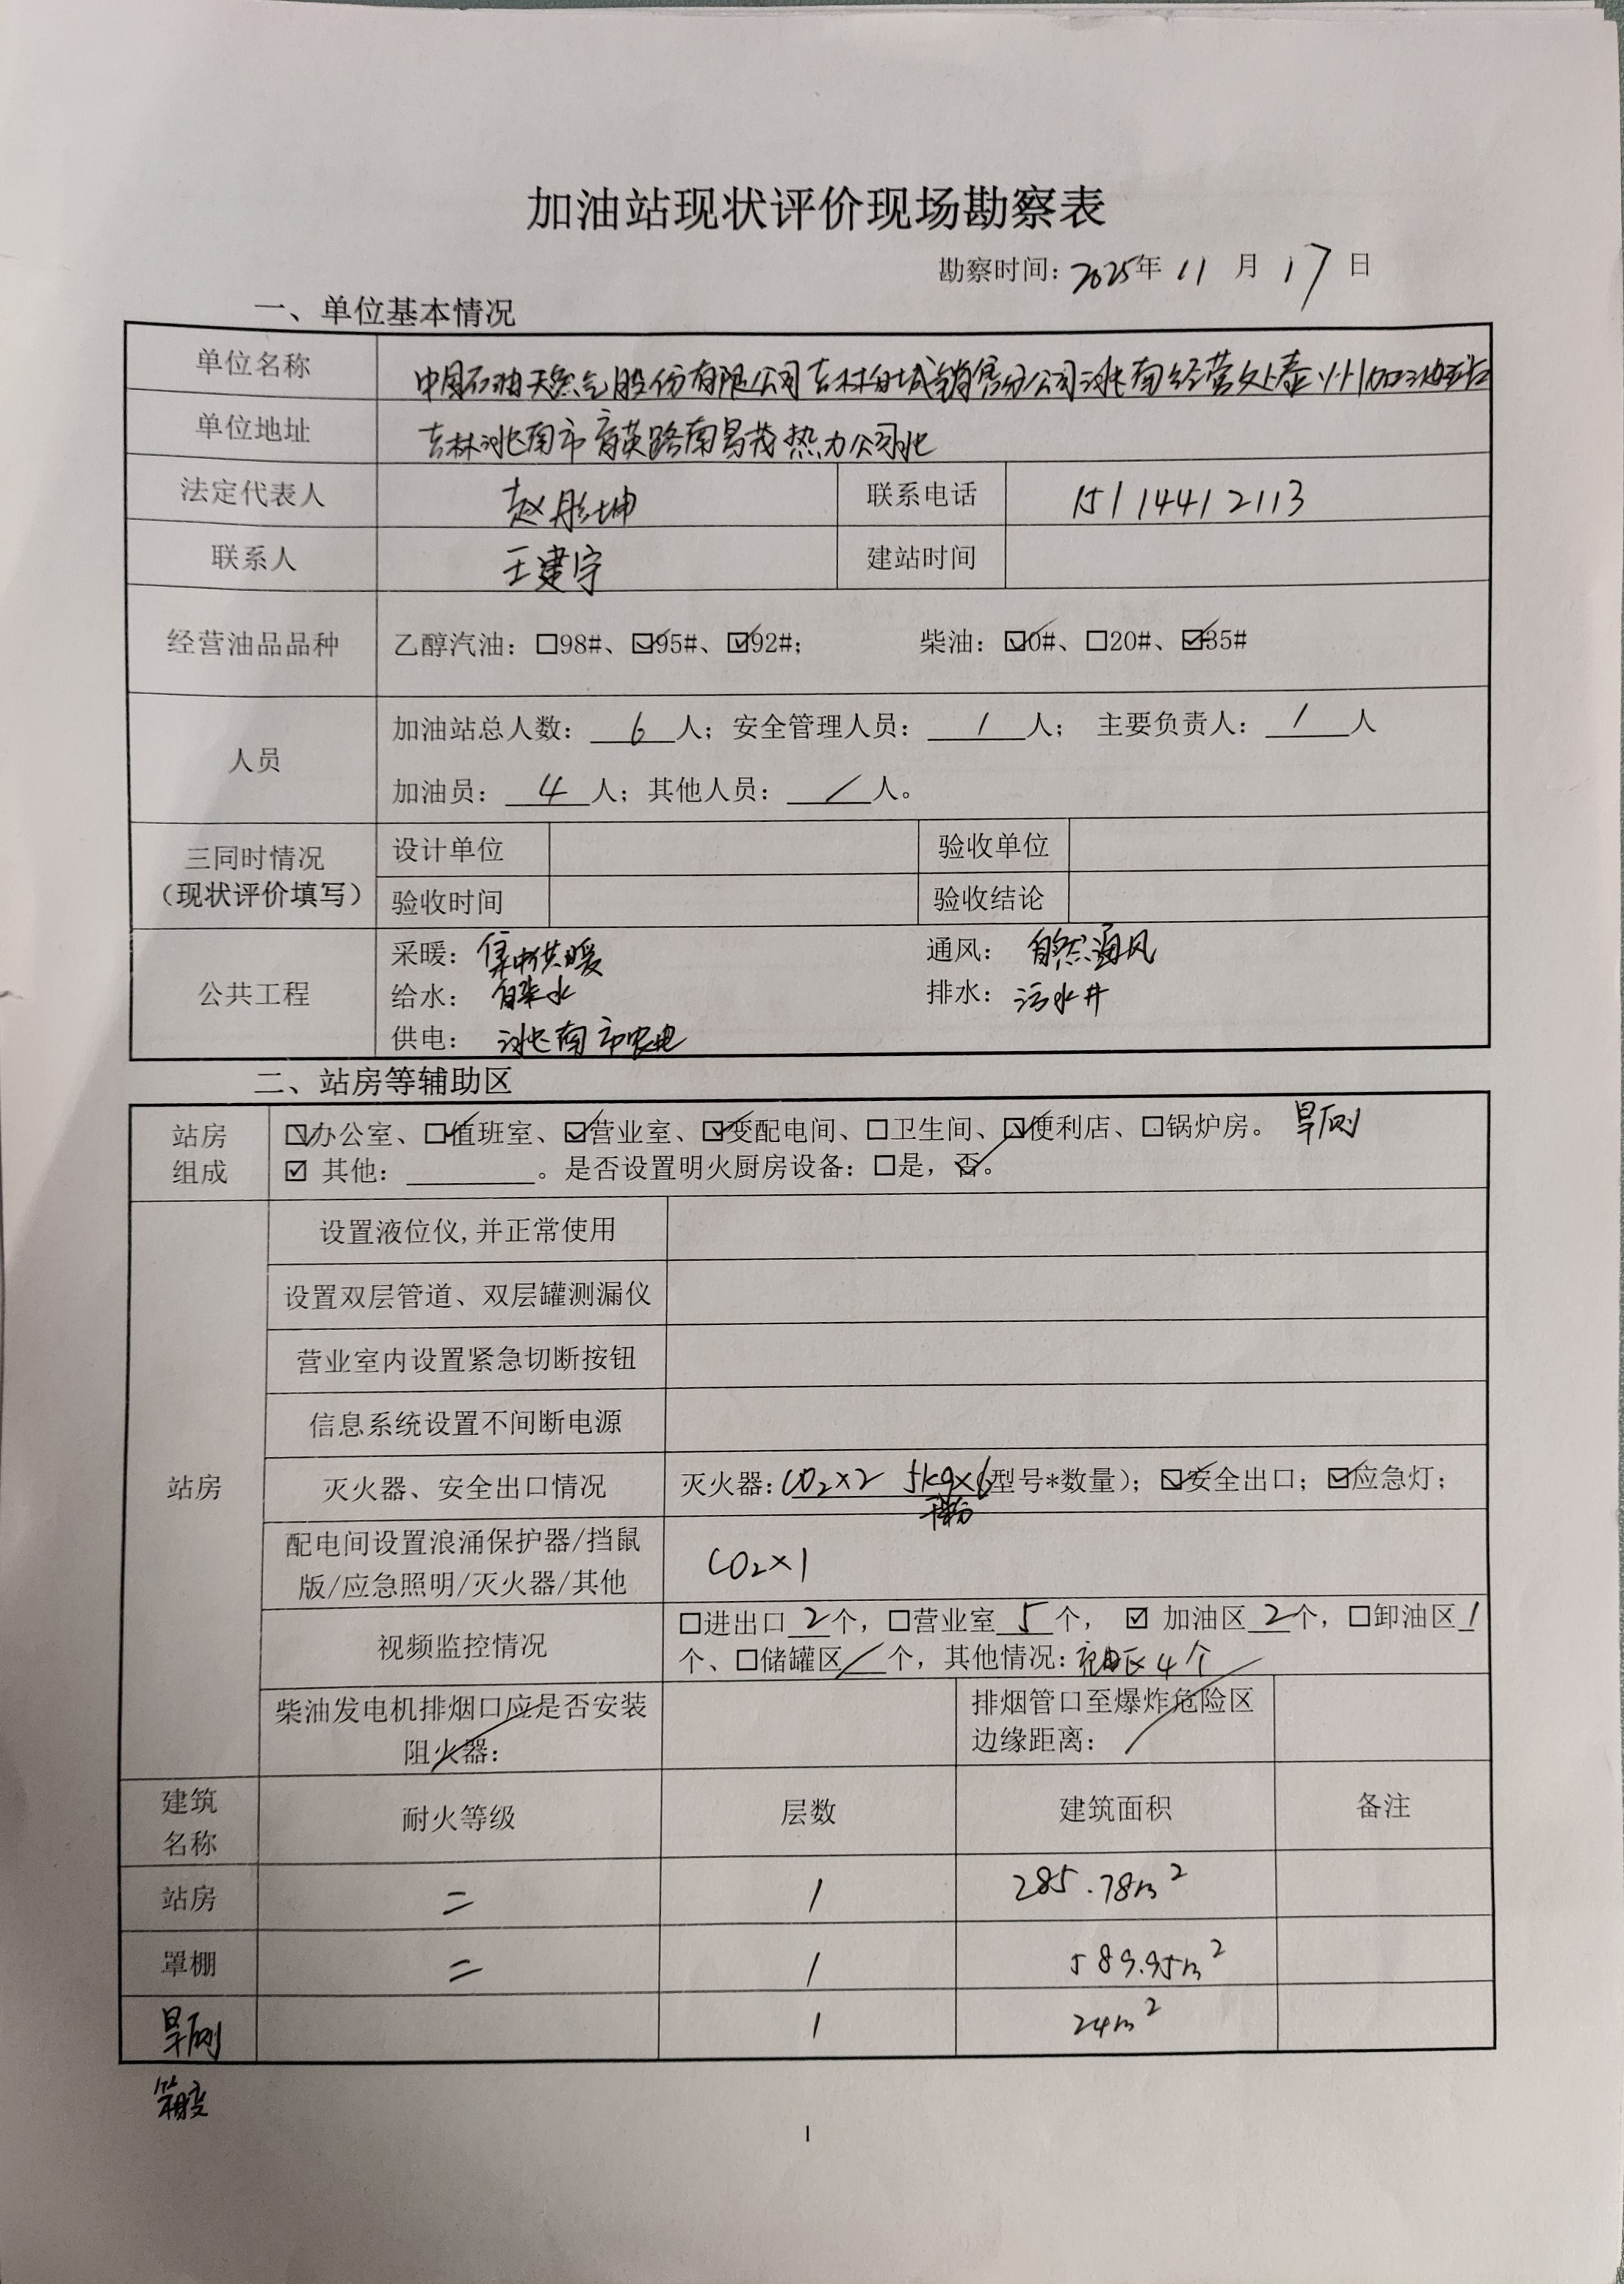 加油站现状评价现场勘察表
勘察时间:2025年 11 月 17 日
一、单位基本情况
单位名称 中国石油天然气股份有限公司吉林白城销售分公司洮南经营处泰州加油站
单位地址 吉林洮南市育英路南昌茂热力公司北
法定代表人 赵彤坤 联系电话 15114412113
联系人 王建宇 建站时间
经营油品品种 乙醇汽油:☐98#、☑95#、☑92#; 柴油:☑0#、☐20#、☑35#
人员
加油站总人数: 6 人; 安全管理人员: 1 人; 主要负责人: 1 人
加油员: 4 人; 其他人员: / 人。
三同时情况
(现状评价填写)
设计单位 验收单位
验收时间 验收结论
公共工程
采暖: 集中供暖 通风: 自然通风
给水: 自来水 排水: 污水井
供电: 洮南市农电
二、站房等辅助区
站房
组成
☑办公室、☑值班室、☑营业室、☑变配电间、☐卫生间、☑便利店、☐锅炉房。 旱厕
☑ 其他: 。是否设置明火厨房设备:☐是,☑否。
站房
设置液位仪,并正常使用
设置双层管道、双层罐测漏仪
营业室内设置紧急切断按钮
信息系统设置不间断电源
灭火器、安全出口情况 灭火器: CO₂×2 5kg×6 型号*数量); ☑安全出口; ☑应急灯;
干粉
配电间设置浪涌保护器/挡鼠
版/应急照明/灭火器/其他 CO₂×1
视频监控情况
☐进出口 2 个, ☐营业室 5 个, ☑ 加油区 2 个, ☐卸油区 1
个、☐储罐区 / 个, 其他情况: 4个
柴油发电机排烟口应是否安装
阻火器:
排烟管口至爆炸危险区
边缘距离: /
建筑
名称 耐火等级 层数 建筑面积 备注
站房 二 1 285.78m²
罩棚 二 1 589.95m²
旱厕 1 24m²
箱变
1